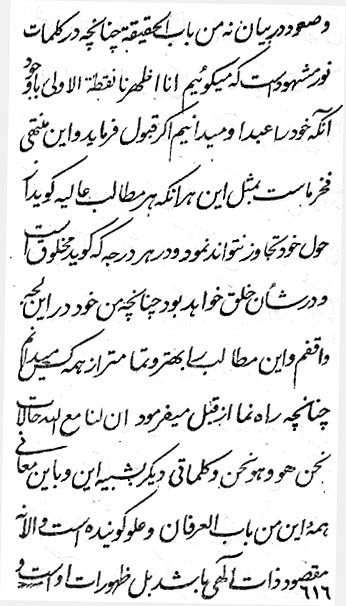 وصعود در بیان نه من باب الحقیقة چنانچه در کلمات
نور مشهود است که میگوئیم انا اظهرنا نقطة الاولی با وجود
آنکه خود را عبد او میدانیم اگر قبول فرماید و این منتهی
فخر ماست بمثل این هر آنکه هر مطالب عالیه گوید از
حول خود تجاوز نتواند نمود و در هر درجه که گوید مخلوق است
و در شأن خلق خواهد بود چنانچه من خود در این لجه
واقفم و این مطالب را بهتر و تمامتر از همه کس میدانم
چنانچه راه نما از قبل میفرمود ان لنا مع الله حالات
نحن هو و هو نحن و کلماتی دیگر بشبیه این و باین معانی
همهٔ این من باب العرفان و علو گوینده است و الا نه
مقصود ذات الهی باشد بل ظهورات او است و
۶۱۶